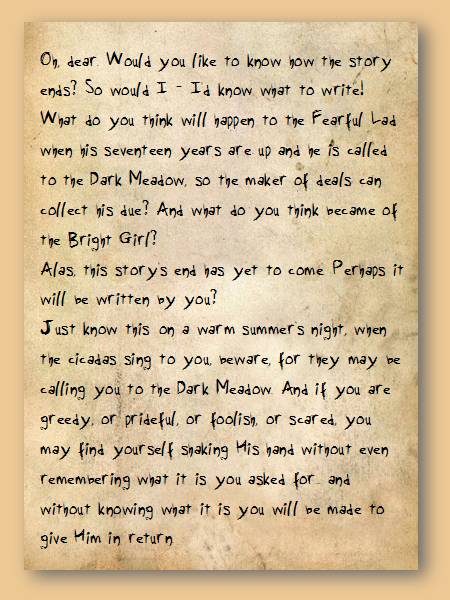 Oh, dear. Would you like to know how the story
ends? So would I - I'd know what to write!
What do you think will happen to the Fearful Lad
when his seventeen years are up and he is called
to the Dark Meadow, so the maker of deals can
collect his due? And what do you think became of
the Bright Girl?
Alas, this story's end has yet to come. Perhaps it
will be written by you?
Just know this: on a warm summer's night, when
the cicadas sing to you, beware, for they may be
calling you to the Dark Meadow. And if you are
greedy, or prideful, or foolish, or scared, you
may find yourself shaking His hand without even
remembering what it is you asked for... and
without knowing what it is you will be made to
give Him in return.